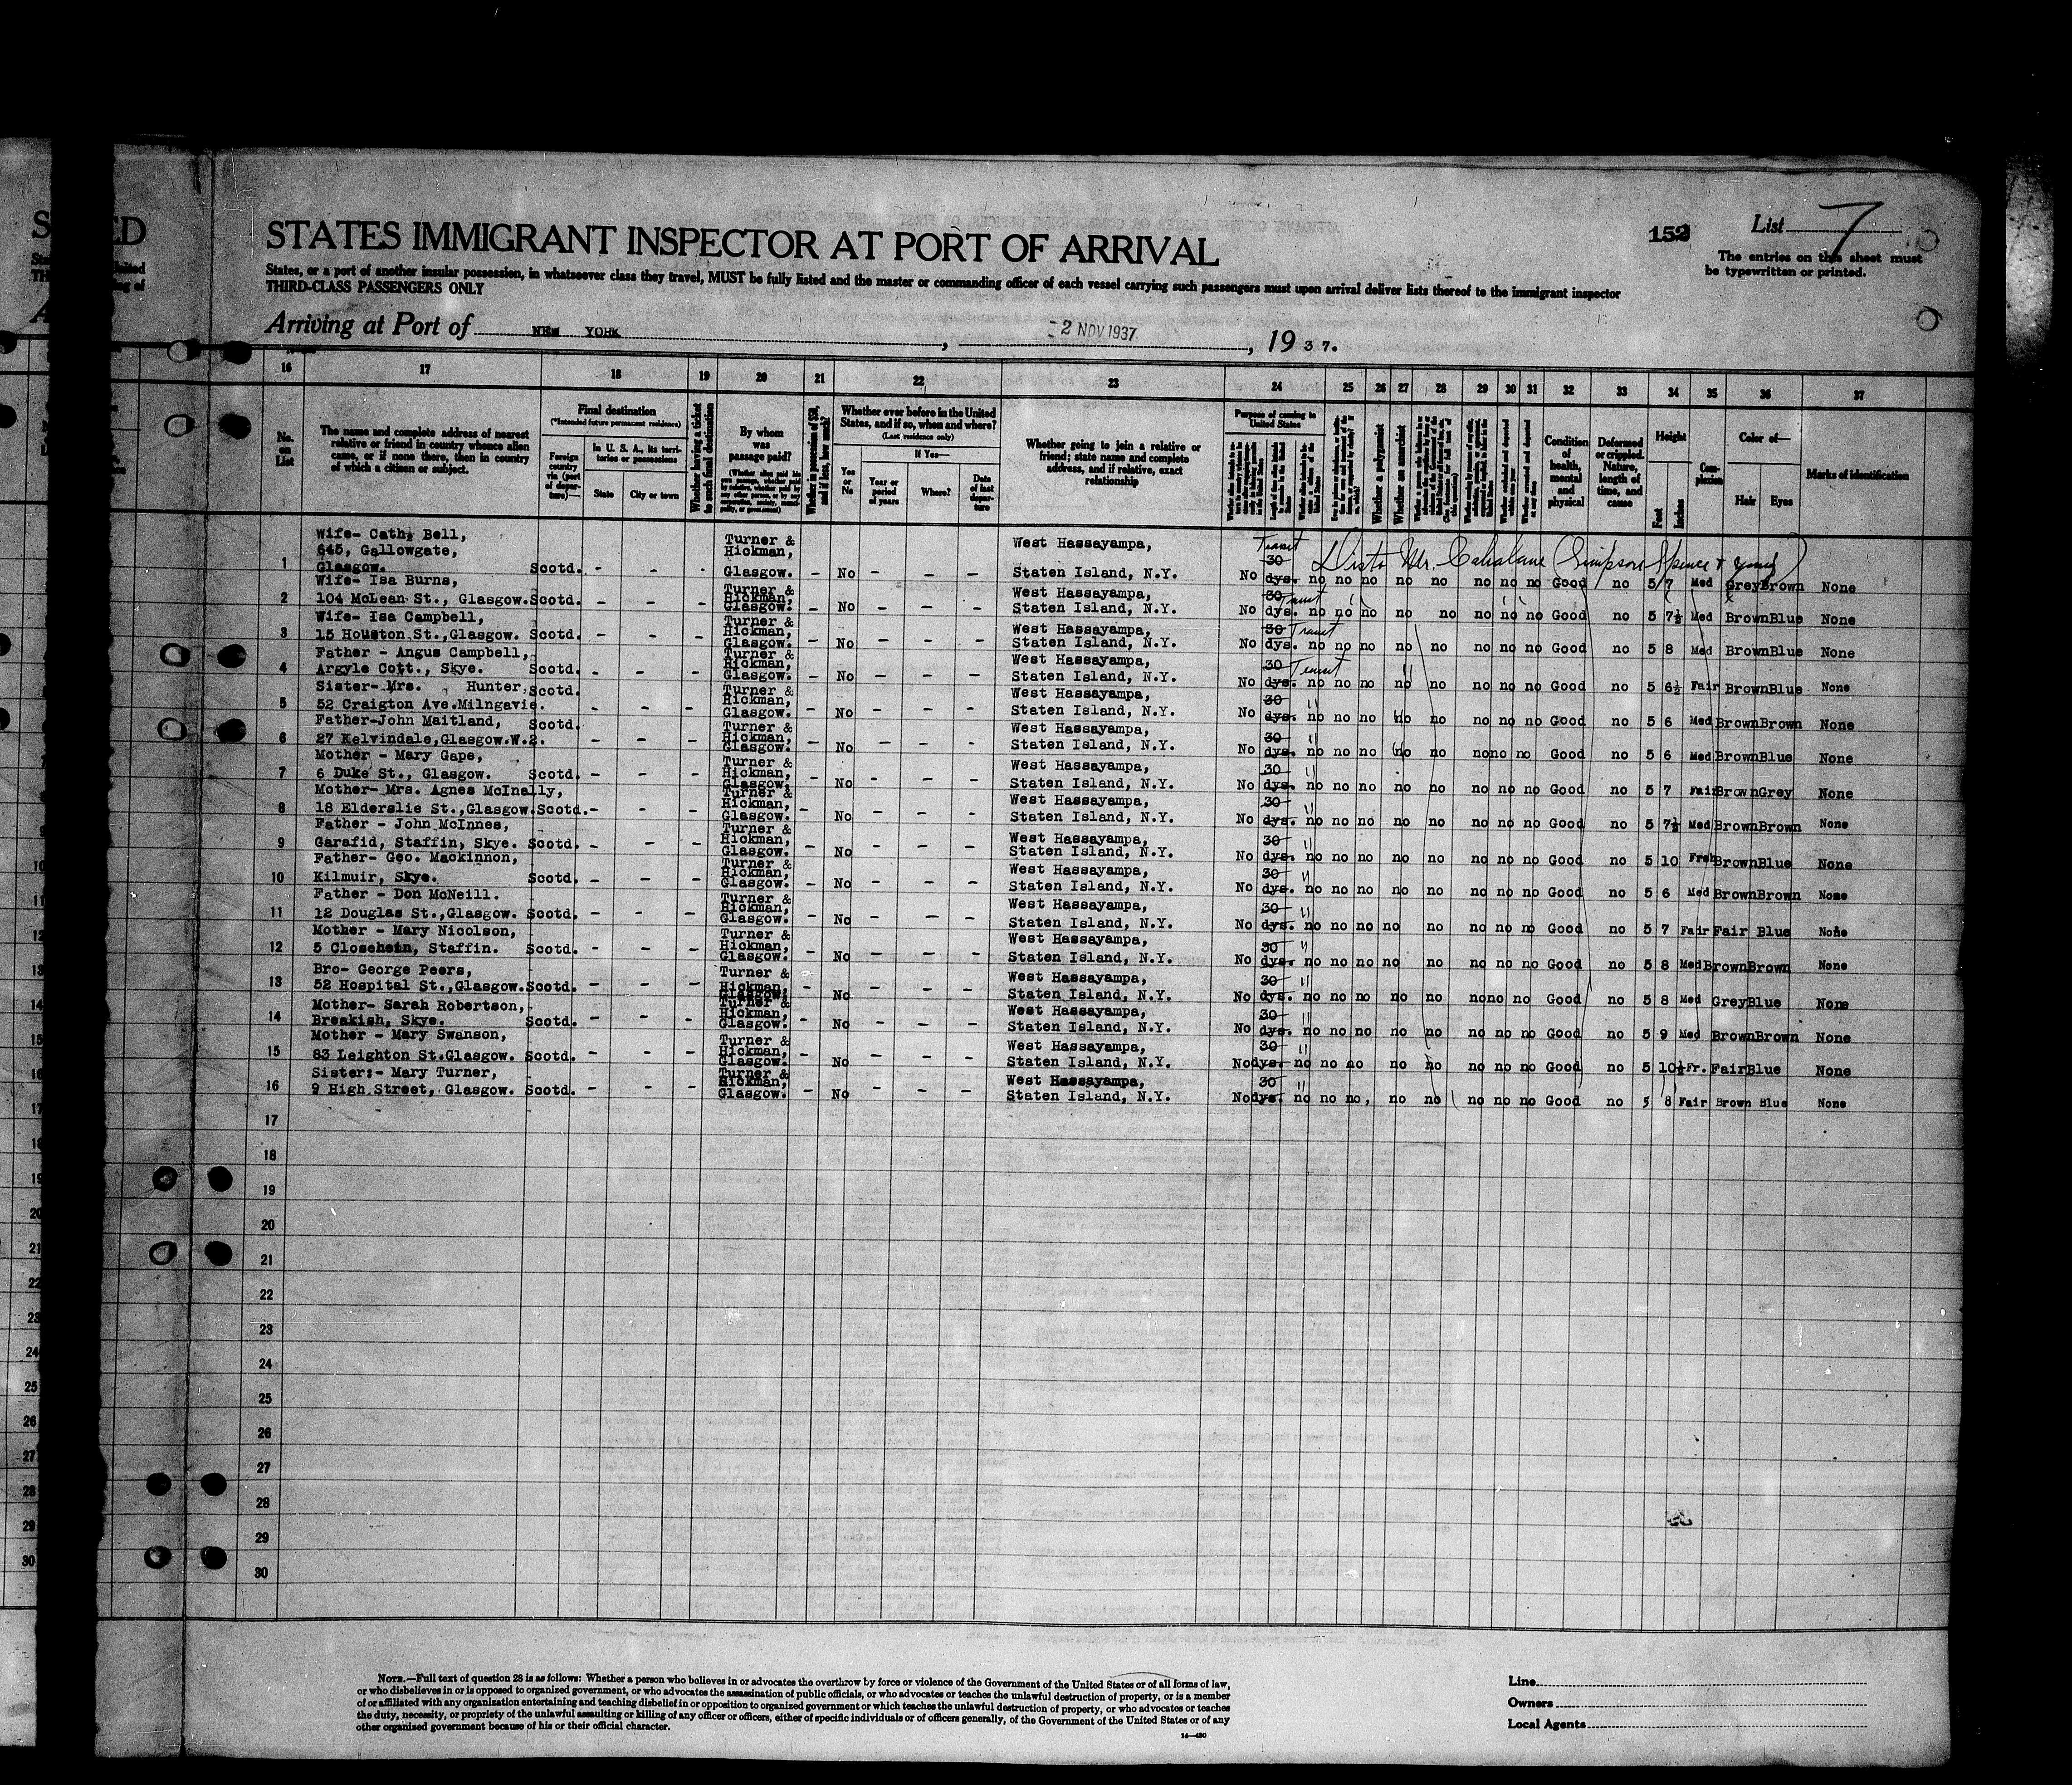 S ED
STATES IMMIGRANT INSPECTOR AT PORT OF ARRIVAL
152
List 7
The entries on this sheet must
be typewritten or printed.
States, or a port of another insular possession, in whatsoever class they travel, MUST be fully listed and the master or commanding officer of each vessel carrying such passengers must upon arrival deliver lists thereof to the immigrant inspector
THIRD-CLASS PASSENGERS ONLY
Arriving at Port of NEW YORK, 2 NOV 1937, 19 37.
16 17 18 19 20 21 22 23 24 25 26 27 28 29 30 31 32 33 34 35 36 37
No. on List
The name and complete address of nearest
relative or friend in country whence alien
came, or if none there, then in country
of which a citizen or subject.
Final destination
(*Intended future permanent residence)
Foreign country via (port of departure)—
In U. S. A., its territories or possessions
State
City or town
Whether having a ticket to such final destination
By whom was passage paid?
Whether in possession of $50, and if less, how much?
Whether ever before in the United
States, and if so, when and where?
(Last residence only)
Yes or No
If Yes—
Year or period of years
Where?
Date of last departure
Whether going to join a relative or
friend; state name and complete
address, and if relative, exact
relationship
Purpose of coming to
United States
Whether a polygamist
Whether an anarchist
Condition of health, mental and physical
Deformed or crippled. Nature, length of time, and cause
Height
Feet
Inches
Complexion
Color of—
Hair
Eyes
Marks of identification
1 Wife- Cath. Bell, 645, Gallowgate, Glasgow. Scotd. - - - Turner & Hickman, Glasgow. - No - - - West Hassayampa, Staten Island, N.Y. No 30 dys. Transit no no no no no no no no Good no 5 7 Med Grey Brown None
(Simpson Spence & Young)
2 Wife- Isa Burns, 104 McLean St., Glasgow. Scotd. - - - Turner & Hickman, Glasgow. - No - - - West Hassayampa, Staten Island, N.Y. No 30 dys. Transit no no no no no no no no Good no 5 7½ Med Brown Blue None
3 Wife- Isa Campbell, 15 Houston St., Glasgow. Scotd. - - - Turner & Hickman, Glasgow. - No - - - West Hassayampa, Staten Island, N.Y. No 30 dys. Transit no no no no no no no no Good no 5 8 Med Brown Blue None
4 Father - Angus Campbell, Argyle Cott., Skye. Scotd. - - - Turner & Hickman, Glasgow. - No - - - West Hassayampa, Staten Island, N.Y. No 30 dys. Transit no no no no no no no no Good no 5 6½ Fair Brown Blue None
5 Sister- Mrs. Hunter, 52 Craigton Ave. Milngavie. Scotd. - - - Turner & Hickman, Glasgow. - No - - - West Hassayampa, Staten Island, N.Y. No 30 dys. " no no no no no no no no Good no 5 6 Med Brown Brown None
6 Father-John Maitland, 27 Kelvindale, Glasgow.W.2. Scotd. - - - Turner & Hickman, Glasgow. - No - - - West Hassayampa, Staten Island, N.Y. No 30 dys. " no no no no no no no no Good no 5 6 Med Brown Blue None
7 Mother - Mary Gape, 6 Duke St., Glasgow. Scotd. - - - Turner & Hickman, Glasgow. - No - - - West Hassayampa, Staten Island, N.Y. No 30 dys. " no no no no no no no no Good no 5 7 Fair Brown Grey None
8 Mother- Mrs. Agnes McInally, 18 Elderslie St., Glasgow. Scotd. - - - Turner & Hickman, Glasgow. - No - - - West Hassayampa, Staten Island, N.Y. No 30 dys. " no no no no no no no no Good no 5 7½ Med Brown Brown None
9 Father - John McInnes, Garafid, Staffin, Skye. Scotd. - - - Turner & Hickman, Glasgow. - No - - - West Hassayampa, Staten Island, N.Y. No 30 dys. " no no no no no no no no Good no 5 10 Frsh Brown Blue None
10 Father- Geo. Mackinnon, Kilmuir, Skye. Scotd. - - - Turner & Hickman, Glasgow. - No - - - West Hassayampa, Staten Island, N.Y. No 30 dys. " no no no no no no no no Good no 5 6 Med Brown Brown None
11 Father - Don McNeill. 12 Douglas St., Glasgow. Scotd. - - - Turner & Hickman, Glasgow. - No - - - West Hassayampa, Staten Island, N.Y. No 30 dys. " no no no no no no no no Good no 5 7 Fair Fair Blue None
12 Mother - Mary Nicolson, 5 Closehein, Staffin. Scotd. - - - Turner & Hickman, Glasgow. - No - - - West Hassayampa, Staten Island, N.Y. No 30 dys. " no no no no no no no no Good no 5 8 Med Brown Brown None
13 Bro- George Peers, 52 Hospital St., Glasgow. Scotd. - - - Turner & Hickman, Glasgow. - No - - - West Hassayampa, Staten Island, N.Y. No 30 dys. " no no no no no no no no Good no 5 8 Med Grey Blue None
14 Mother- Sarah Robertson, Breakish, Skye. Scotd. - - - Turner & Hickman, Glasgow. - No - - - West Hassayampa, Staten Island, N.Y. No 30 dys. " no no no no no no no no Good no 5 9 Med Brown Brown None
15 Mother - Mary Swanson, 83 Leighton St. Glasgow. Scotd. - - - Turner & Hickman, Glasgow. - No - - - West Hassayampa, Staten Island, N.Y. No 30 dys. " no no no no no no no no Good no 5 10½ Fr. Fair Blue None
16 Sister:- Mary Turner, 9 High Street, Glasgow. Scotd. - - - Turner & Hickman, Glasgow. - No - - - West Hassayampa, Staten Island, N.Y. No 30 dys. " no no no no no no no no Good no 5 8 Fair Brown Blue None
17
18
19
20
21
22
23
24
25
26
27
28
29
30
NOTE.—Full text of question 28 is as follows: Whether a person who believes in or advocates the overthrow by force or violence of the Government of the United States or of all forms of law,
or who disbelieves in or is opposed to organized government, or who advocates the assassination of public officials, or who advocates or teaches the unlawful destruction of property, or is a member
of or affiliated with any organisation entertaining and teaching disbelief in or opposition to organized government or which teaches the unlawful destruction of property, or who advocates or teaches
the duty, necessity, or propriety of the unlawful assaulting or killing of any officer or officers, either of specific individuals or of officers generally, of the Government of the United States or of any
other organised government because of his or their official character.
14—430
Line
Owners
Local Agents